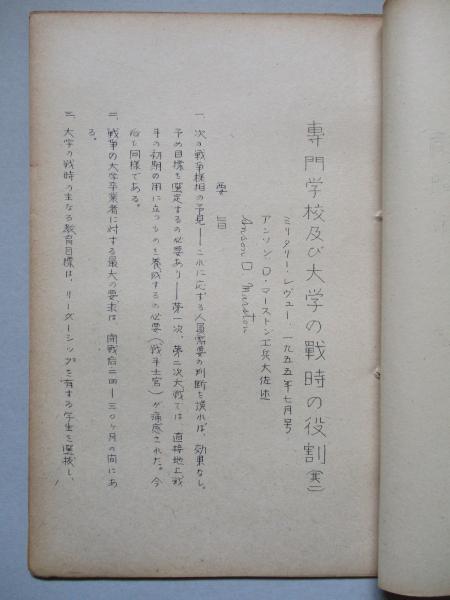 専門学校及び大学の戰時の役割(其一)
ミリタリー・レヴュー 一九五五年七月号
アンソン・D・マーストン工兵大佐述
Anson D. Marston
要旨
一、次の戦争様相の予見——これに応ずる人員需要の判断を誤れば、効果なし。
予め目標を選定するの必要あり——第一次、第二次大戦では、直接地上戦
の初期の用に立つものを養成するの必要(戦斗士官)が痛感された。今
も同様である。
二、戦争の大学卒業者に対する最大の要求は、開戦后二四—三〇ヶ月の間にあ
る。
三、大学の戦時の主なる教育目標は、リーダーシップを有する学生を選抜し、